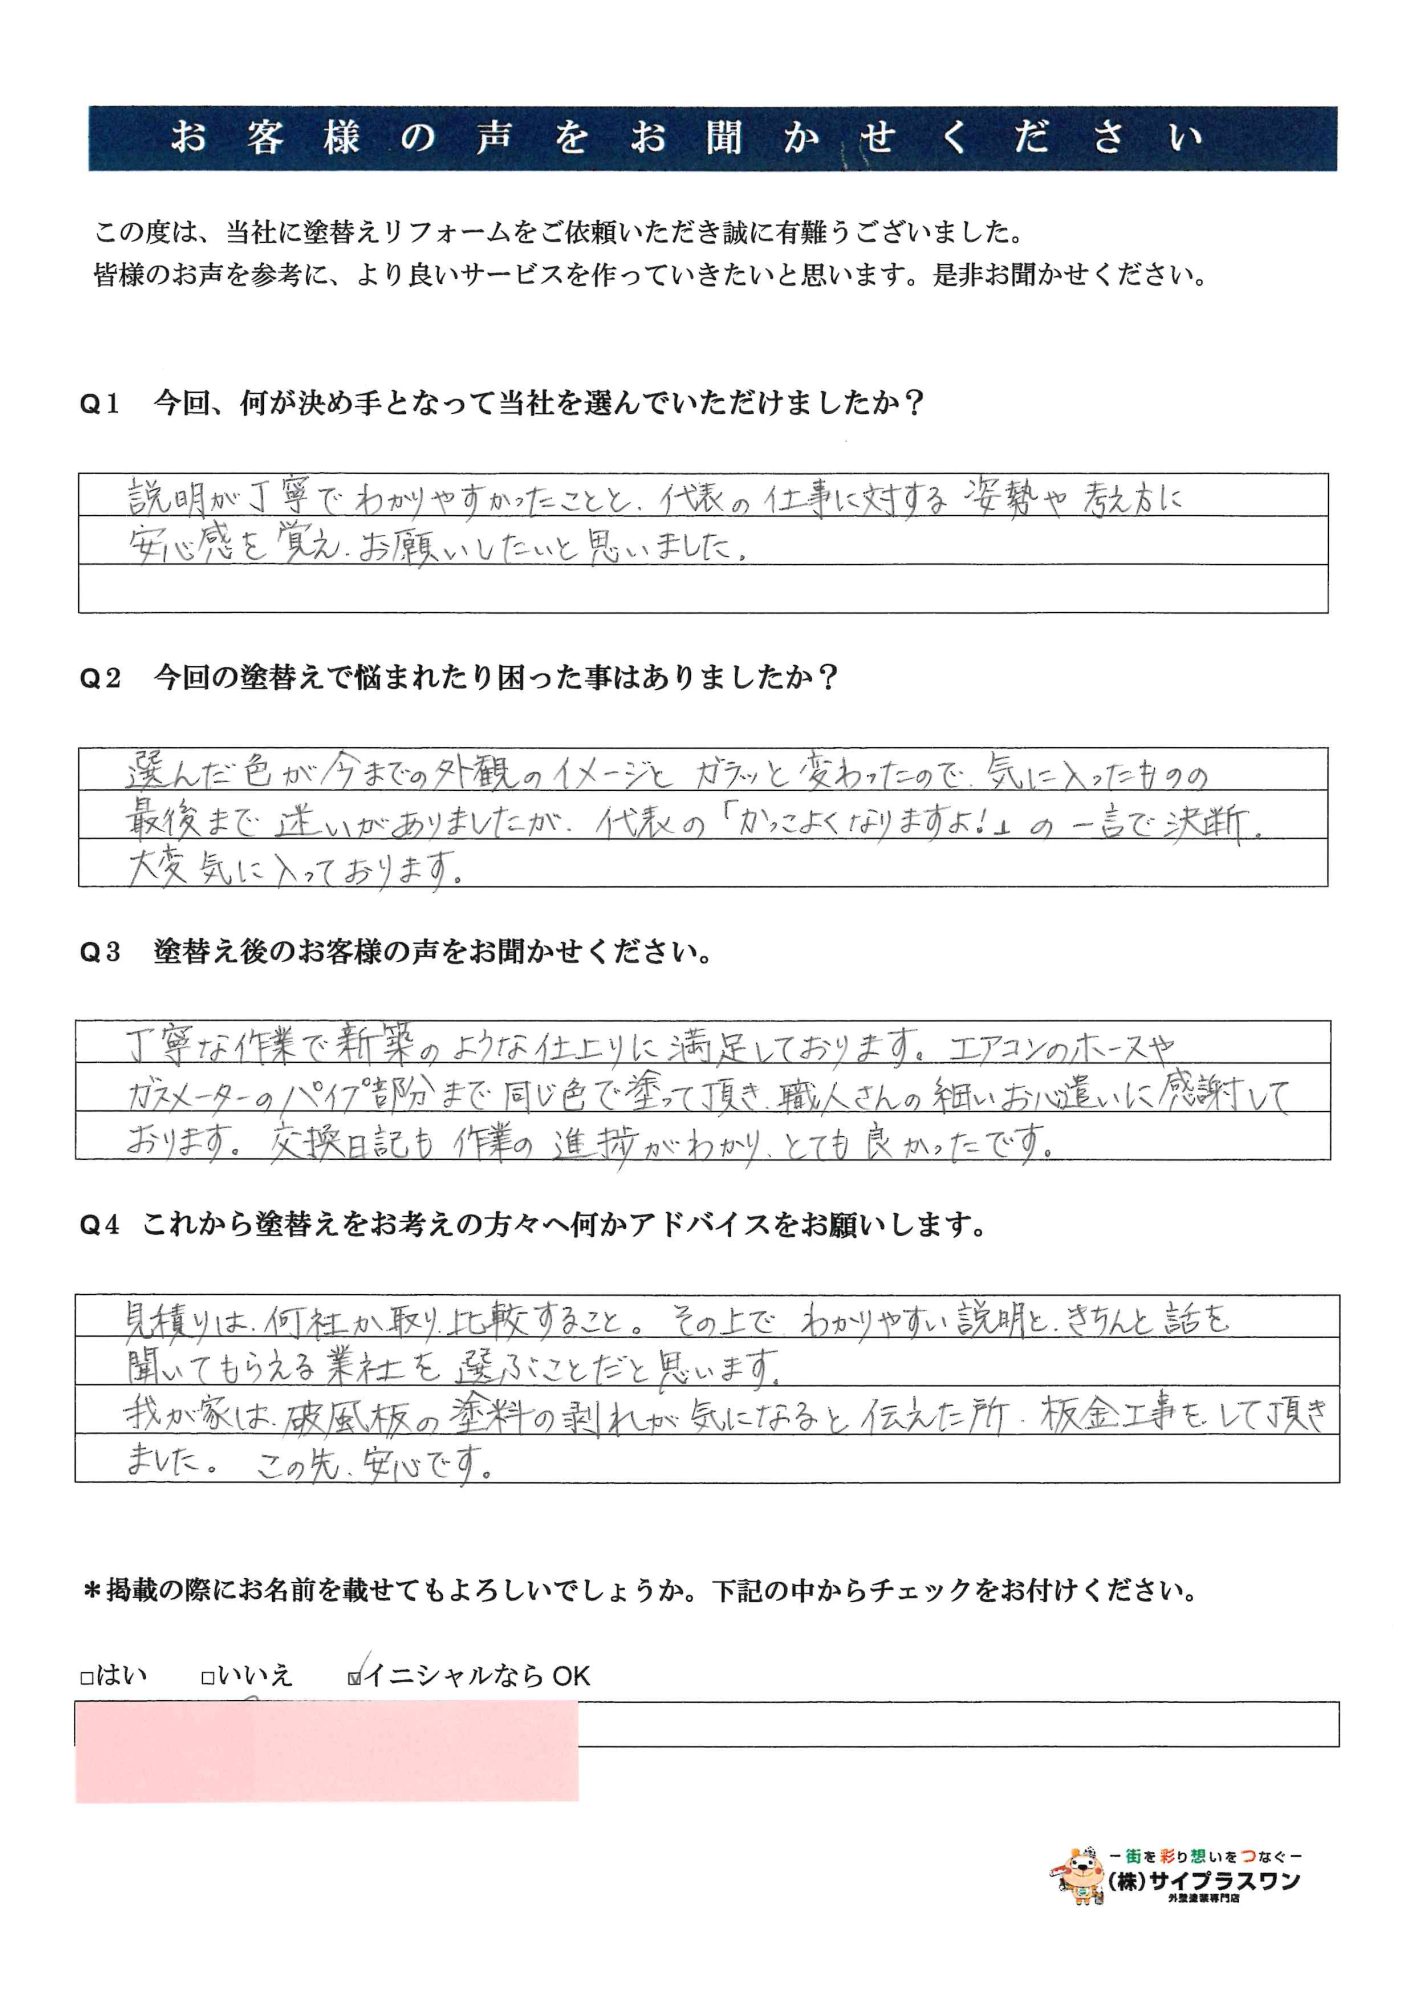 お客様の声をお聞かせください
この度は、当社に塗替えリフォームをご依頼いただき誠に有難うございました。
皆様のお声を参考に、より良いサービスを作っていきたいと思います。是非お聞かせください。
Q1 今回、何が決め手となって当社を選んでいただけましたか？
説明が丁寧でわかりやすかったことと、代表の仕事に対する姿勢や考え方に
安心感を覚え、お願いしたいと思いました。
Q2 今回の塗替えで悩まれたり困った事はありましたか？
選んだ色が今までの外観のイメージとガラッと変わったので、気に入ったものの
最後まで迷いがありましたが、代表の「かっこよくなりますよ！」の一言で決断。
大変気に入っております。
Q3 塗替え後のお客様の声をお聞かせください。
丁寧な作業で新築のような仕上りに満足しております。エアコンのホースや
ガスメーターのパイプ部分まで同じ色で塗って頂き、職人さんの細いお心遣いに感謝して
おります。交換日記も作業の進捗がわかり、とても良かったです。
Q4 これから塗替えをお考えの方々へ何かアドバイスをお願いします。
見積りは、何社か取り、比較すること。その上でわかりやすい説明と、きちんと話を
聞いてもらえる業社を選ぶことだと思います。
我が家は、破風板の塗料の剥れが気になると伝えた所、板金工事をして頂き
ました。この先、安心です。
＊掲載の際にお名前を載せてもよろしいでしょうか。下記の中からチェックをお付けください。
□はい □いいえ ☑イニシャルなら OK
－街を彩り想いをつなぐ－
（株）サイプラスワン
外壁塗装専門店